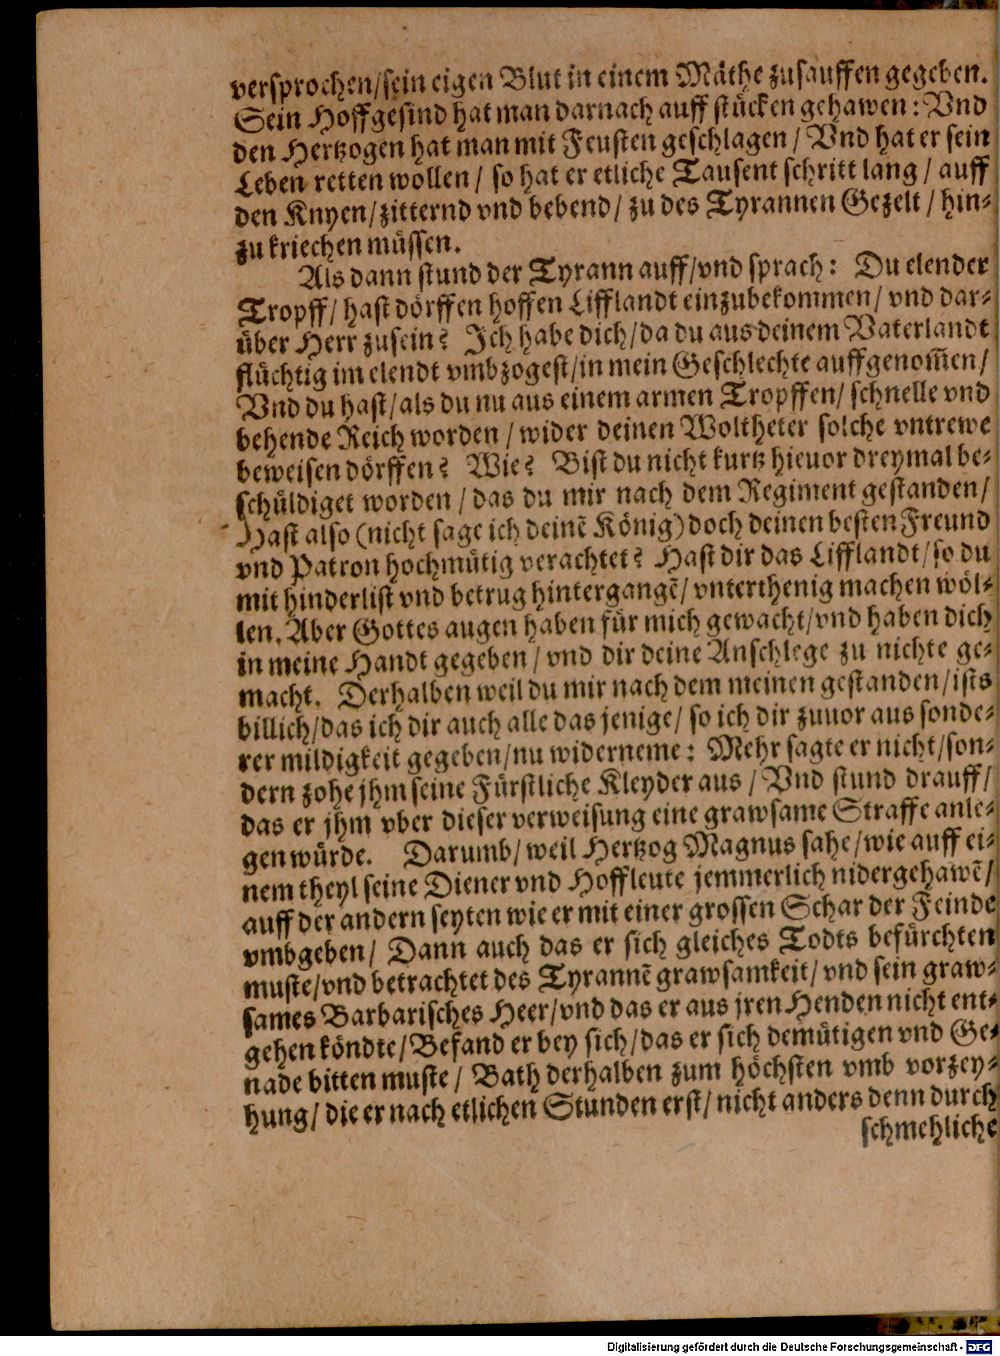 versprochen/sein eigen Blut in einem Mäthe zusauffen gegeben.
Sein Hoffgesind hat man darnach auff stücken gehawen: Vnd
den Hertzogen hat man mit Feusten geschlagen / Vnd hat er sein
Leben retten wollen / so hat er etliche Tausent schritt lang / auff
den Knyen/zitternd vnd bebend/ zu des Tyrannen Gezelt / hin-
zu kriechen müssen.
Als dann stund der Tyrann auff/vnd sprach: Du elender
Tropff/ hast dörffen hoffen Lifflandt einzubekommen/ vnd dar-
über Herr zusein? Ich habe dich/da du aus deinem Vaterlandt
flüchtig im elendt vmbzogest/in mein Geschlechte auffgenom̄en/
Vnd du hast/als du nu aus einem armen Tropffen/ schnelle vnd
behende Reich worden / wider deinen Woltheter solche vntrewe
beweisen dörffen? Wie? Bist du nicht kurtz hieuor dreymal be-
schüldiget worden / das du mir nach dem Regiment gestanden/
Hast also (nicht sage ich deinē König) doch deinen besten Freund
vnd Patron hochmütig verachtet? Hast dir das Lifflandt/so du
mit hinderlist vnd betrug hintergangē/ vnterthenig machen wöl-
len. Aber Gottes augen haben für mich gewacht/vnd haben dich
in meine Handt gegeben / vnd dir deine Anschlege zu nichte ge-
macht. Derhalben weil du mir nach dem meinen gestanden/ists
billich/das ich dir auch alle das jenige/ so ich dir zuuor aus sonde-
rer mildigkeit gegeben/nu widerneme: Mehr sagte er nicht/son-
dern zohe jhm seine Fürstliche Kleyder aus / Vnd stund drauff/
das er jhm vber dieser verweisung eine grawsame Straffe anle-
gen würde. Darumb/ weil Hertzog Magnus sahe/wie auff ei-
nem theyl seine Diener vnd Hoffleute jemmerlich nidergehawē/
auff der andern seyten wie er mit einer grossen Schar der Feinde
vmbgeben/ Dann auch das er sich gleiches Todts befürchten
muste/vnd betrachtet des Tyrannē grawsamkeit/ vnd sein graw-
sames Barbarisches Heer/vnd das er aus jren Henden nicht ent-
gehen köndte/Befand er bey sich/das er sich demütigen vnd Ge-
nade bitten muste / Bath derhalben zum höchsten vmb vorzey-
hung/ die er nach etlichen Stunden erst/ nicht anders denn durch
schmehliche
Digitalisierung gefördert durch die Deutsche Forschungsgemeinschaft - DFG